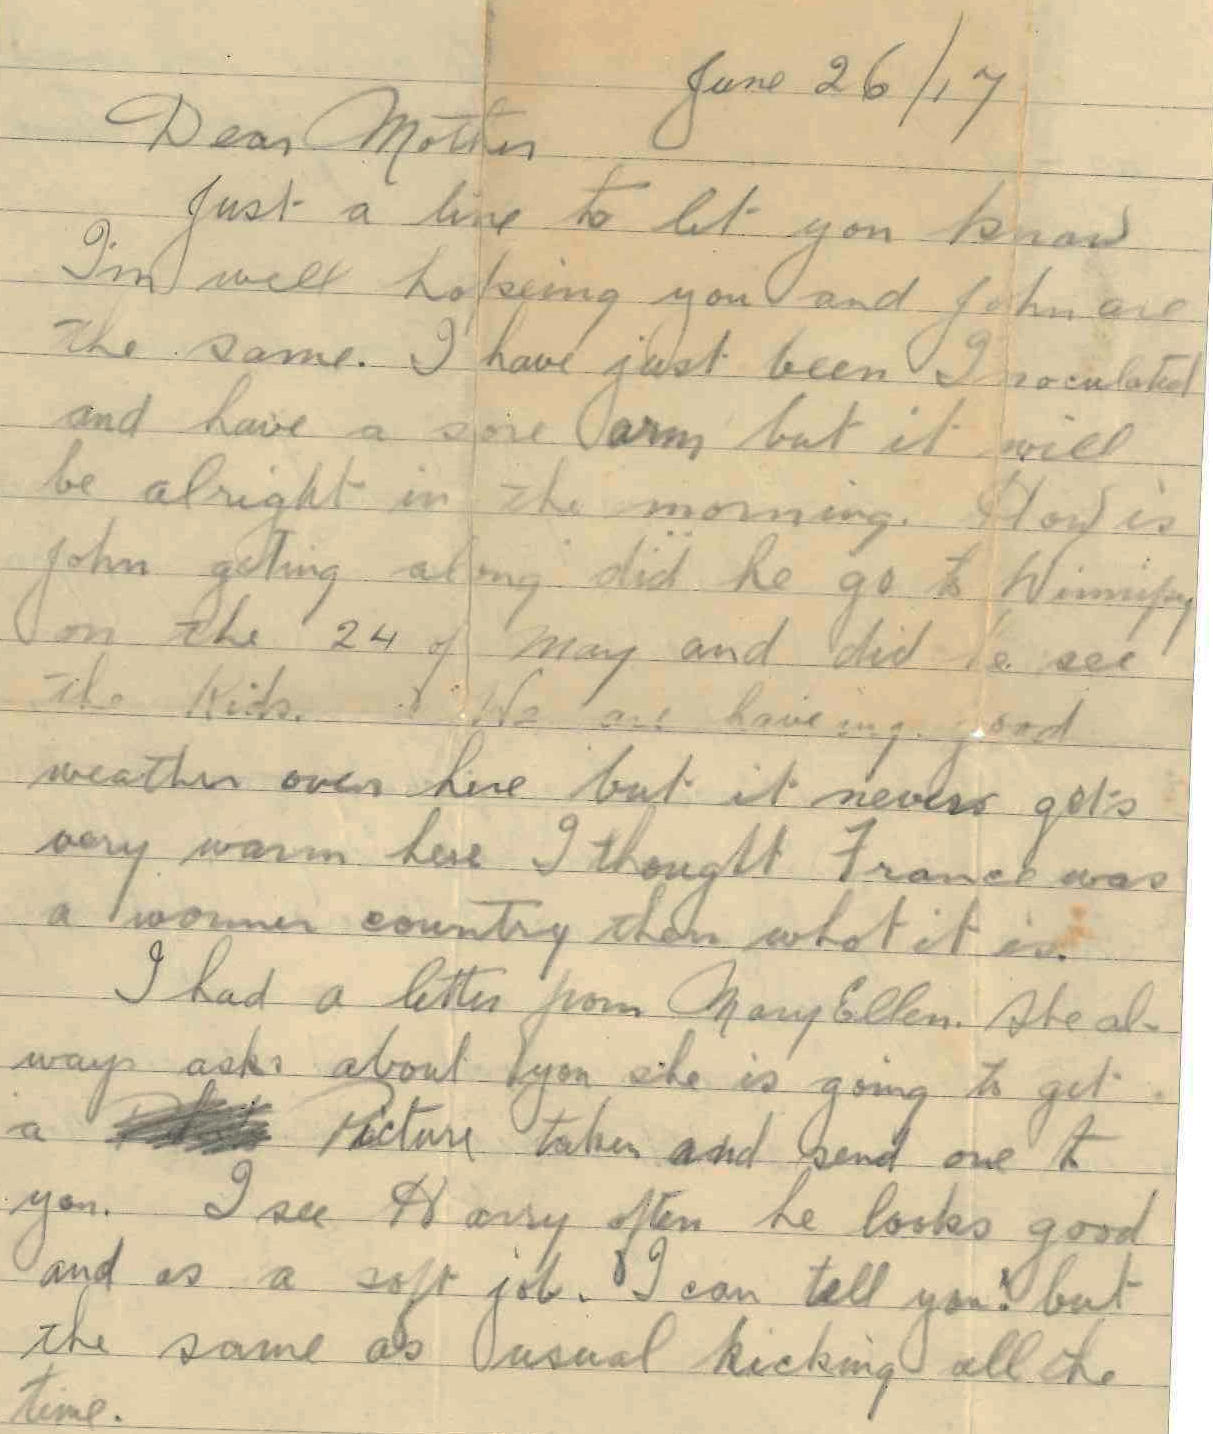 June 26/17
Dear Mother
Just a line to let you know
I'm well hopeing you and John are
the same. I have just been Inoculated
and have a sore arm but it will
be alright in the morning. How is
John geting along did he go to Winnipeg
on the 24 of May and did he see
the Kids. We are haveing good
weather over here but it never gets
very warm here I thought France was
a wormer country then what it is.
I had a letter from Mary Ellen. She al-
ways asks about you she is going to get
a Picture taken and send one to
you. I see Harry often he looks good
and as a soft job. I can tell you. but
the same as usual kicking all the
time.